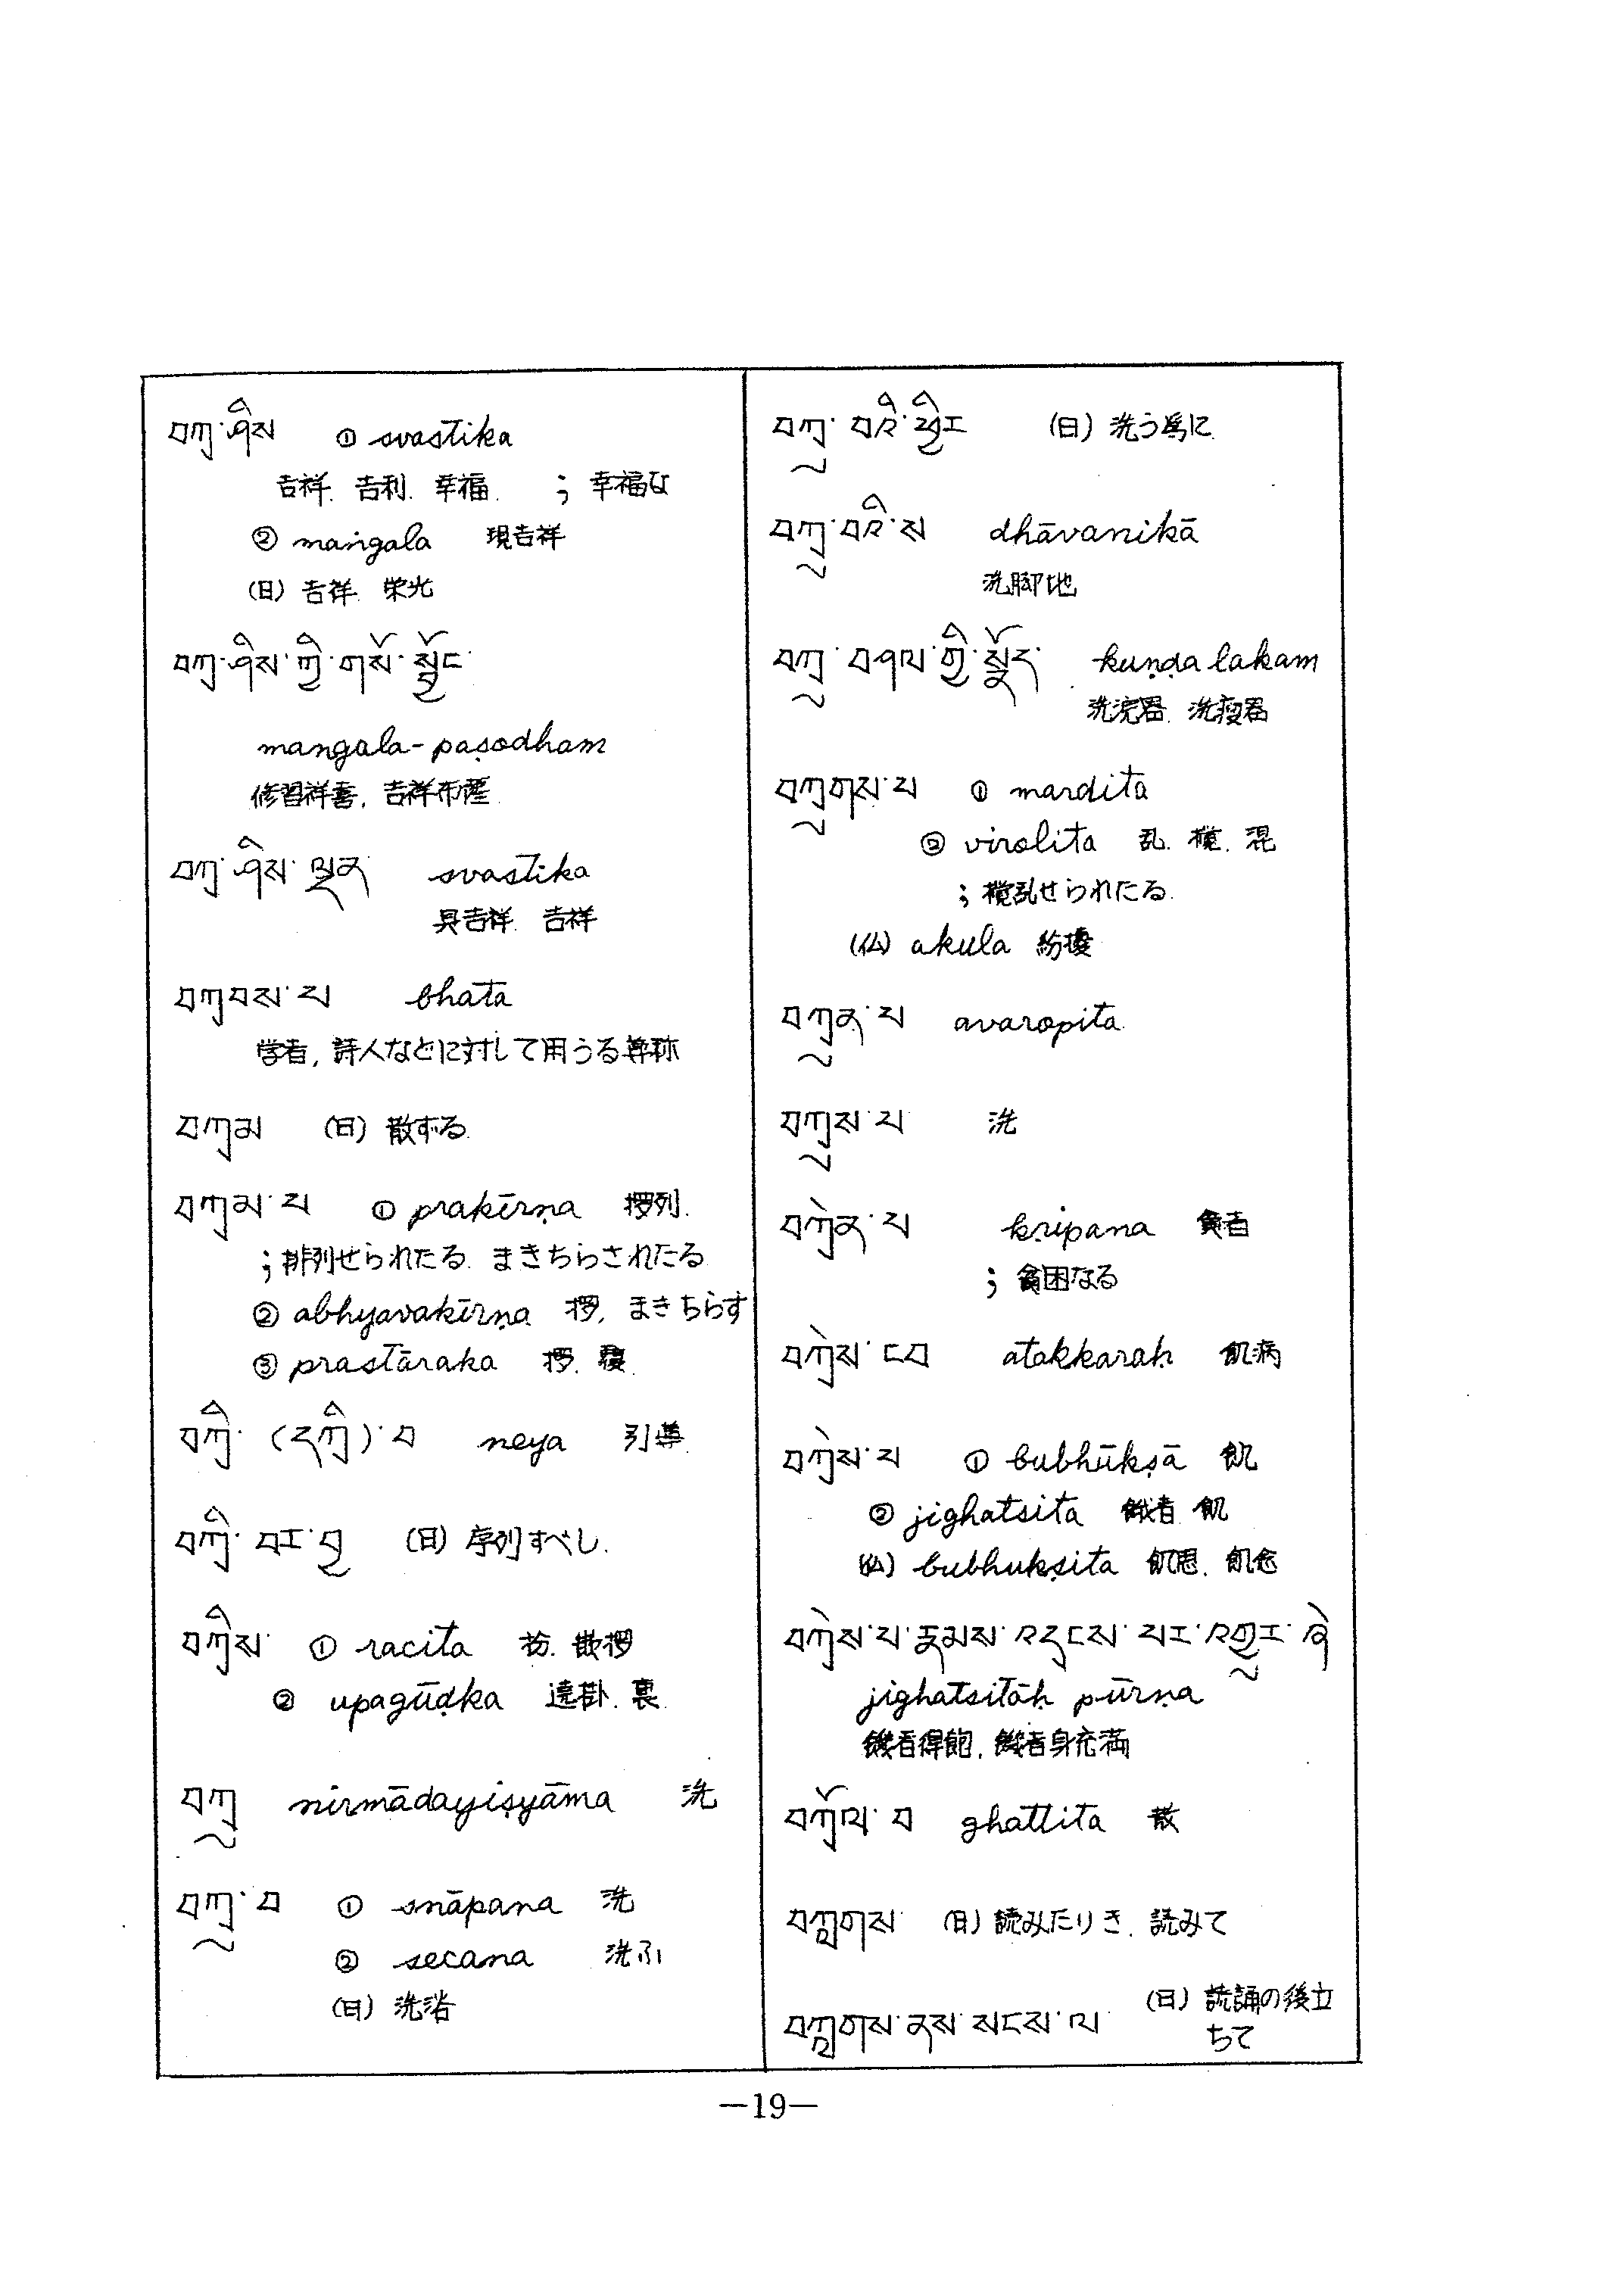 བཀྲ་ཤིས ① svastika
吉祥. 吉利. 幸福. ; 幸福な
② maṅgala 現吉祥
(日) 吉祥. 栄光
བཀྲ་ཤིས་ཀྱི་གསོ་སྦྱོང་
mangala-paṣodham
修習祥善, 吉祥布薩
བཀྲ་ཤིས་ལྡན svastika
具吉祥. 吉祥
བཀྲབས་པ bhata
学者, 詩人などに対して用うる尊称
བཀྲམ (日) 散ずる
བཀྲམ་པ ① prakīrṇa 拶列.
; 排列せられたる. まきちらされたる
② abhyavakīrṇa 拶, まきちらす
③ prastāraka 拶. 覆.
བཀྲི་ (དཀྲི)་བ neya 引導.
བཀྲི་བར་བྱ (日) 序列すべし.
བཀྲིས་ ① racita 散拶
② upagūḍka 裏.
བཀྲུ nirmādayiṣyāma 洗
བཀྲུ་བ ① snāpana 洗
② secana 洗ふ
(日) 洗浴
བཀྲུ་བའི་ཕྱིར (日) 洗う為に.
བཀྲུ་བའི་ས dhāvanikā
洗脚地
བཀྲུ་བཤལ་གྱི་སྣོད་ kuṇḍalakam
洗浣器. 洗瘦器
བཀྲུགས་པ ① mardita
② virolita 乱. 攪. 混
; 攪乱せられたる.
(仏) akula 紛擾
བཀྲུན་པ avaropita.
བཀྲུས་པ 洗
བཀྲེན་པ kṛipana 貧者
; 貧困なる
བཀྲེས་ངབ atakkaraḥ 飢病
བཀྲེས་པ ① bubhūkṣā 飢
② jighatsita 餓者 飢
(仏) bubhukṣita 飢思. 飢念
བཀྲེས་པ་རྣམས་འདངས་པར་འགྱུར་ཞེ
jighatsitāḥ pūrṇa
饑者得飽, 饑者身充満
བཀྲོལ་བ ghattita 散
བཀླགས (日) 読みたりき. 読みて
བཀླགས་ནས་སངས་ལ (日) 読誦の後立
ちて
—19—